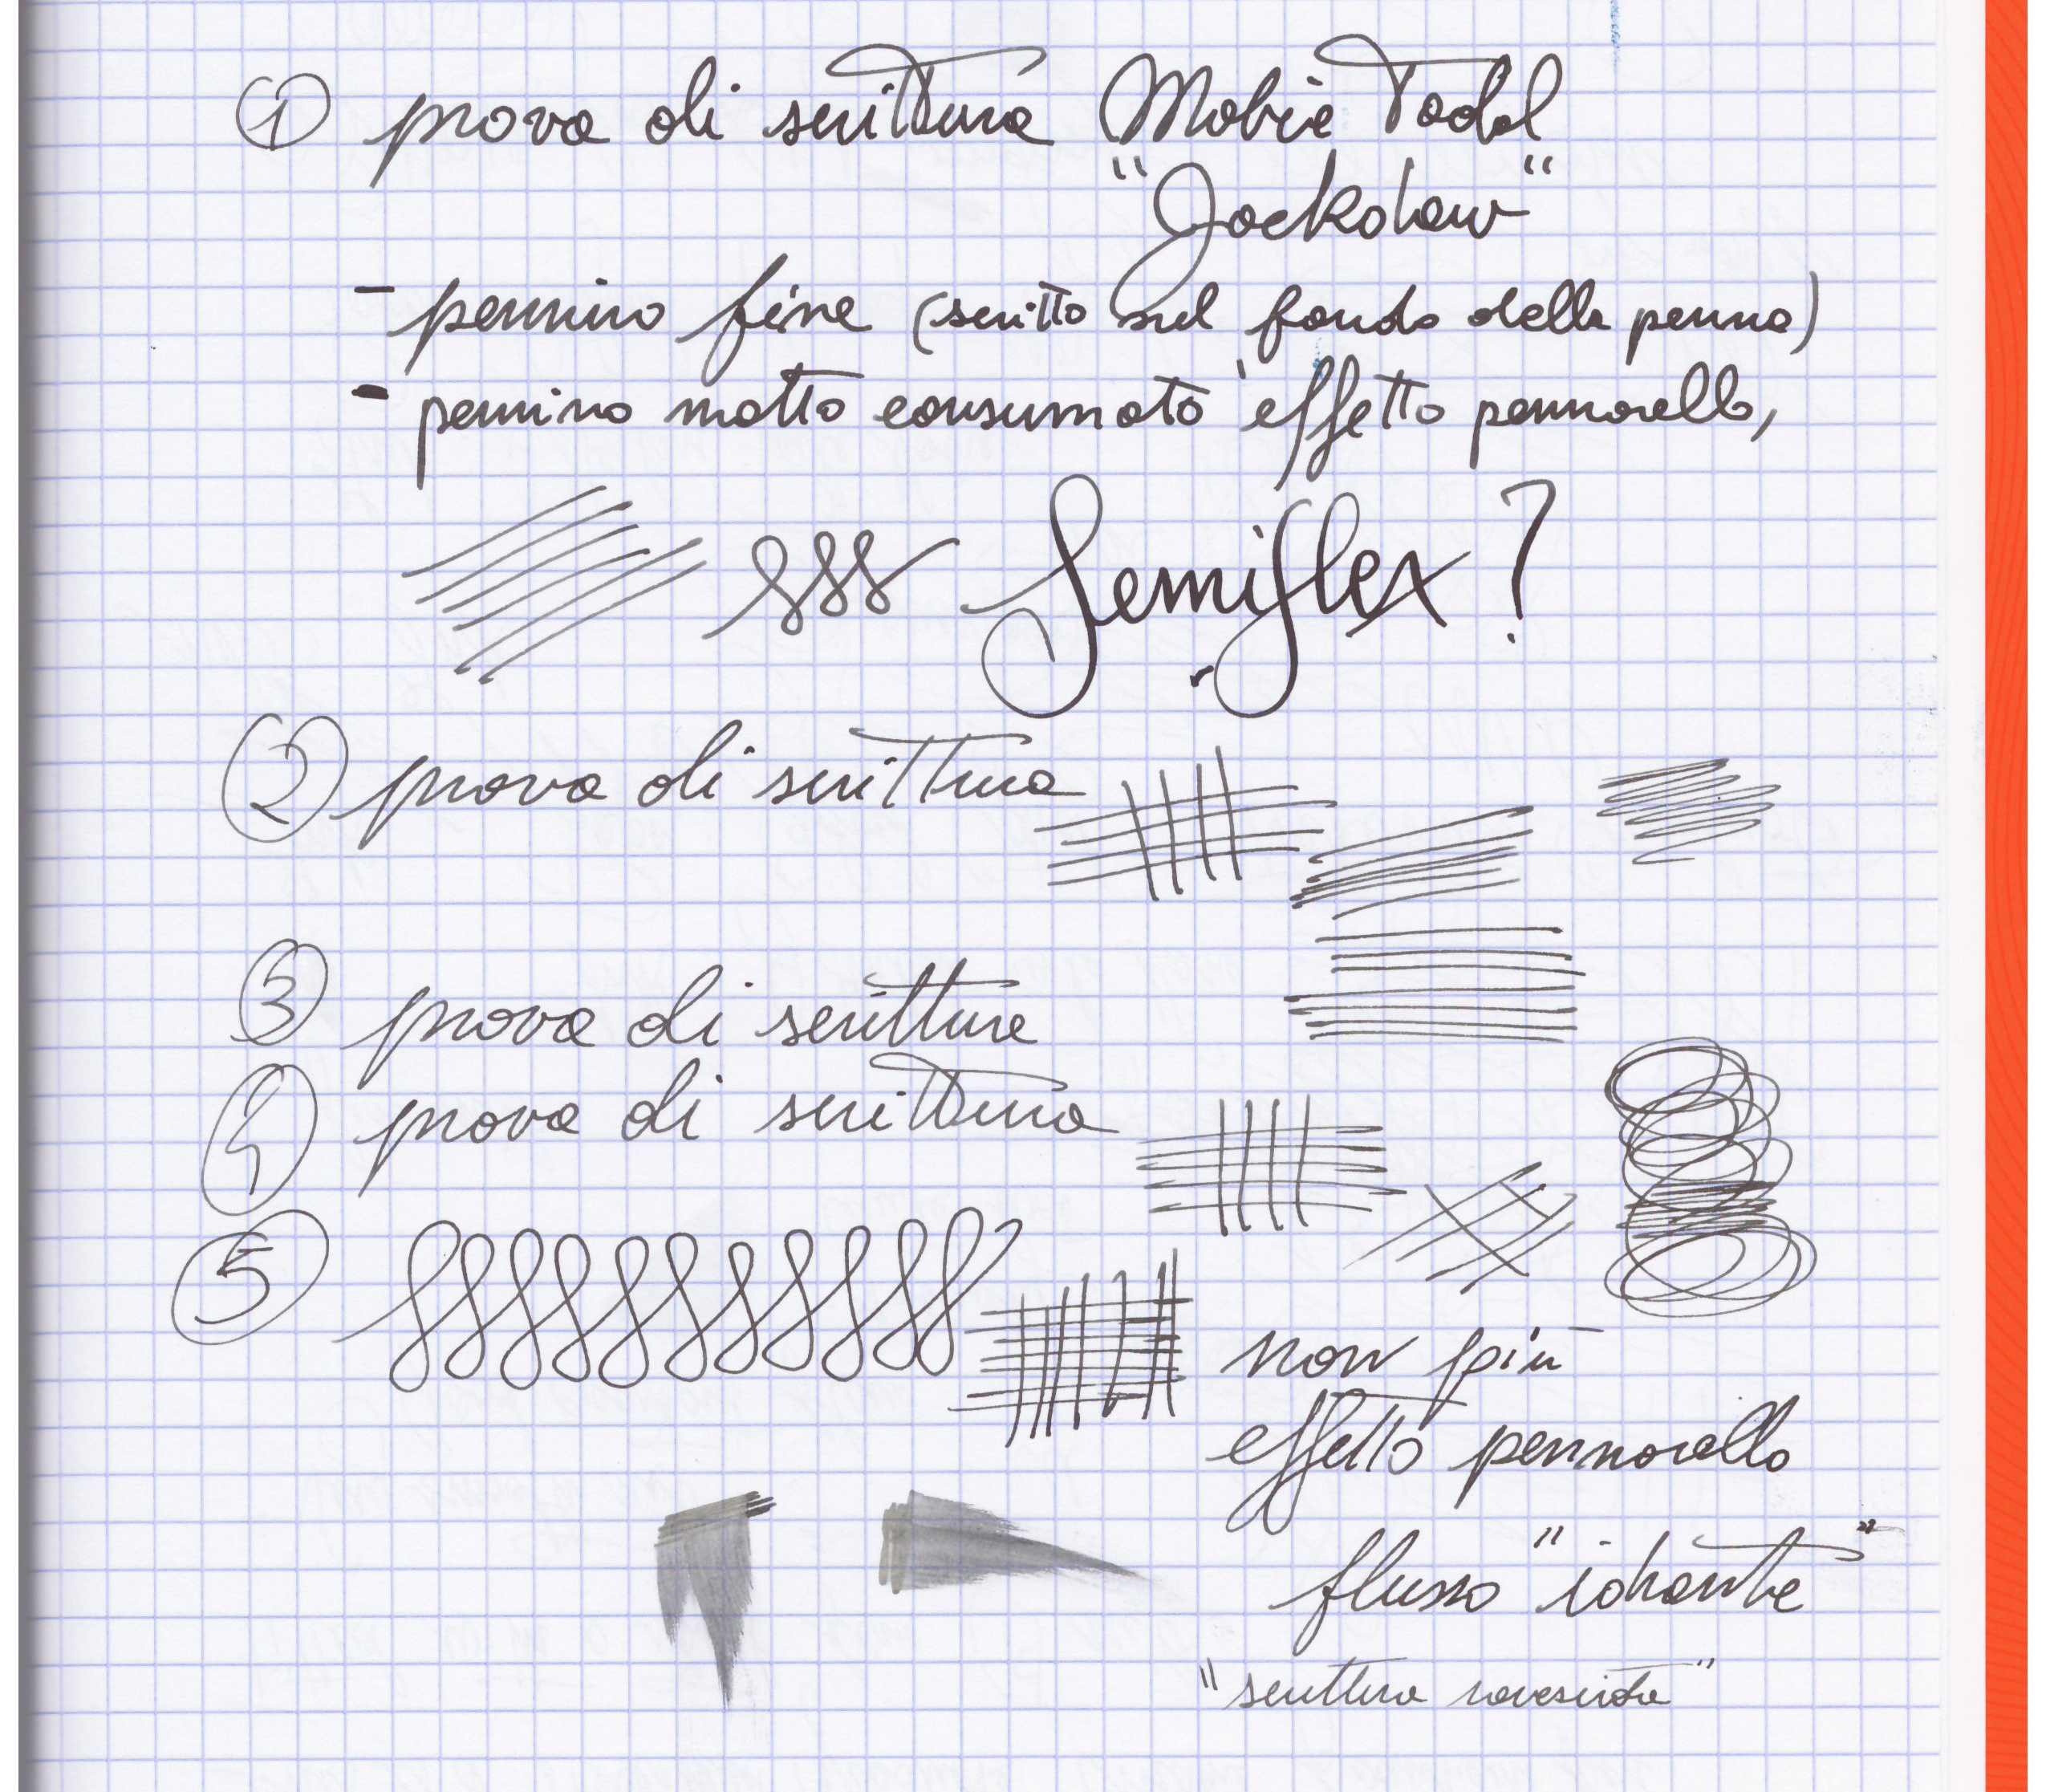 1 prova di scrittura Mabie Todd
"Jackdaw"
- pennino fine (scritto sul fondo della penna)
- pennino molto consumato "effetto pennarello"
Semiflex?
2 prova di scrittura
3 prova di scrittura
4 prova di scrittura
5
non più
effetto pennarello
flusso "idrante"
"scrittura rovesciata"